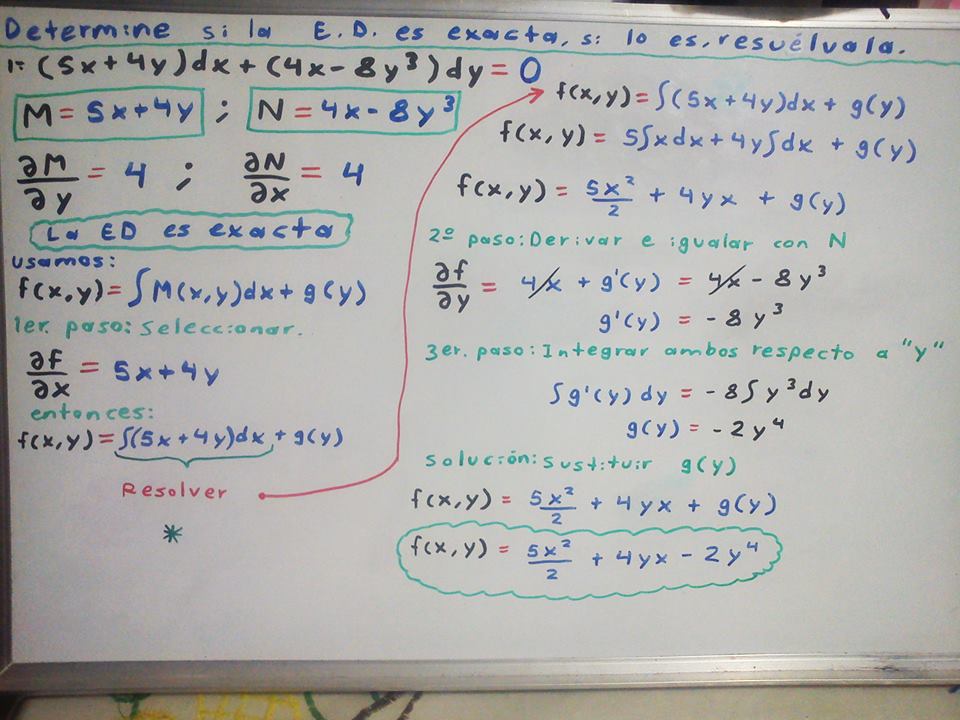 Determine si la E.D. es exacta, si lo es, resuélvala.
1= (5x+4y)dx+(4x-8y³)dy=0
M=5x+4y ; N=4x-8y³
∂M/∂y = 4 ; ∂N/∂x = 4
La ED es exacta
usamos:
f(x,y)=∫M(x,y)dx+g(y)
1er. paso: Seleccionar.
∂f/∂x = 5x+4y
entonces:
f(x,y)=∫(5x+4y)dx+g(y)
Resolver
*
f(x,y)=∫(5x+4y)dx+g(y)
f(x,y)= 5∫xdx+4y∫dx + g(y)
f(x,y)= 5x²/2 + 4yx + g(y)
2º paso: Derivar e igualar con N
∂f/∂y = 4x + g'(y) = 4x - 8y³
g'(y) = -8y³
3er. paso: Integrar ambos respecto a "y"
∫g'(y)dy = -8∫y³dy
g(y)= -2y⁴
solución: Sustituir g(y)
f(x,y)= 5x²/2 + 4yx + g(y)
f(x,y)= 5x²/2 + 4yx - 2y⁴